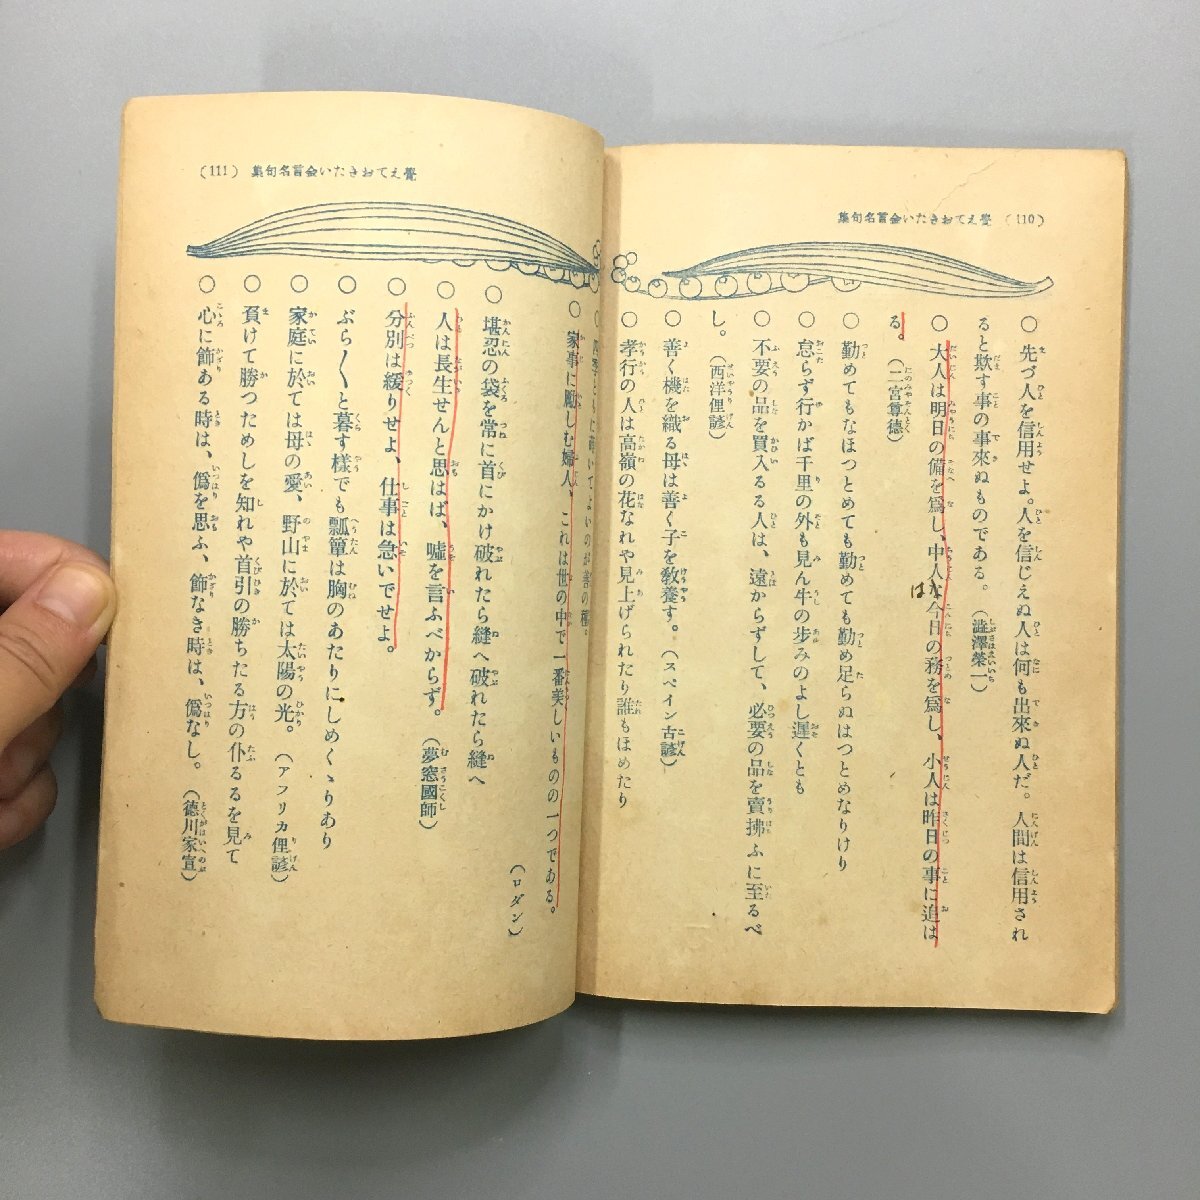 覺えておきたい金言名句集 (110)
○先づ人を信用せよ。人を信じえぬ人は何も出來ぬ人だ。人間は信用され
ると欺す事の事來ぬものである。(澁澤榮一)
○大人は明日の備を爲し、中人な今日の務を爲し、小人は昨日の事に追は
は
る。(二宮尊德)
○勤めてもなほつとめても勤めても勤め足らぬはつとめなりけり
○怠らず行かば千里の外も見ん牛の歩みのよし遲くとも
○不要の品を買入るる人は、遠からずして、必要の品を賣拂ふに至るべ
し。(西洋俚諺)
○善く機を織る母は善く子を教養す。(スペイン古諺)
○孝行の人は高嶺の花なれや見上げられたり誰もほめたり
覺えておきたい金言名句集 (111)
○家事に勵しむ婦人、これは世の中で一番美しいものの一つである。
(ロダン)
○堪忍の袋を常に首にかけ破れたら縫へ破れたら縫へ
○人は長生せんと思はば、噓を言ふべからず。(夢窓國師)
○分別は緩りせよ、仕事は急いでせよ。
○ぶら〳〵と暮す樣でも瓢簞は胸のあたりにしめくゝりあり
○家庭に於ては母の愛、野山に於ては太陽の光。(アフリカ俚諺)
○負けて勝つためしを知れや首引の勝ちたる方の仆るるを見て
○心に飾ある時は、僞を思ふ、飾なき時は、僞なし。(德川家宣)